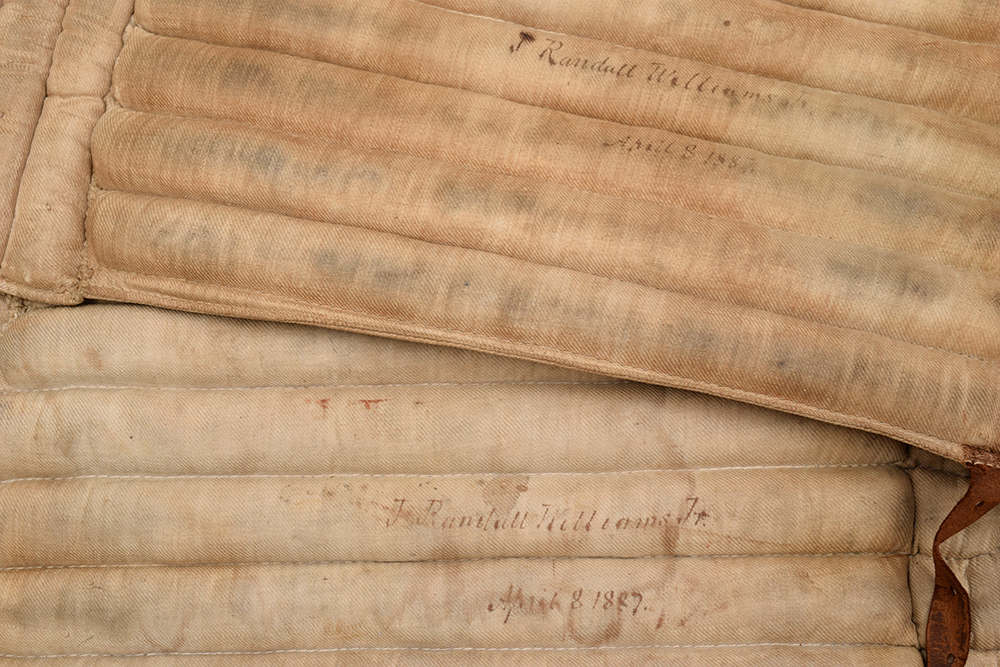 J Randall Williams Jr.
April 8 1887
J Randall Williams Jr.
April 8 1887.